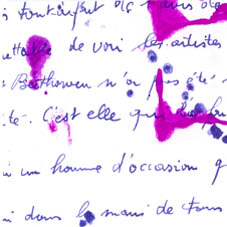 tout
de voir les artistes
Beethowen n'a pas été
te. C'est elle qui
un homme d'occasion q
dans la main de tous